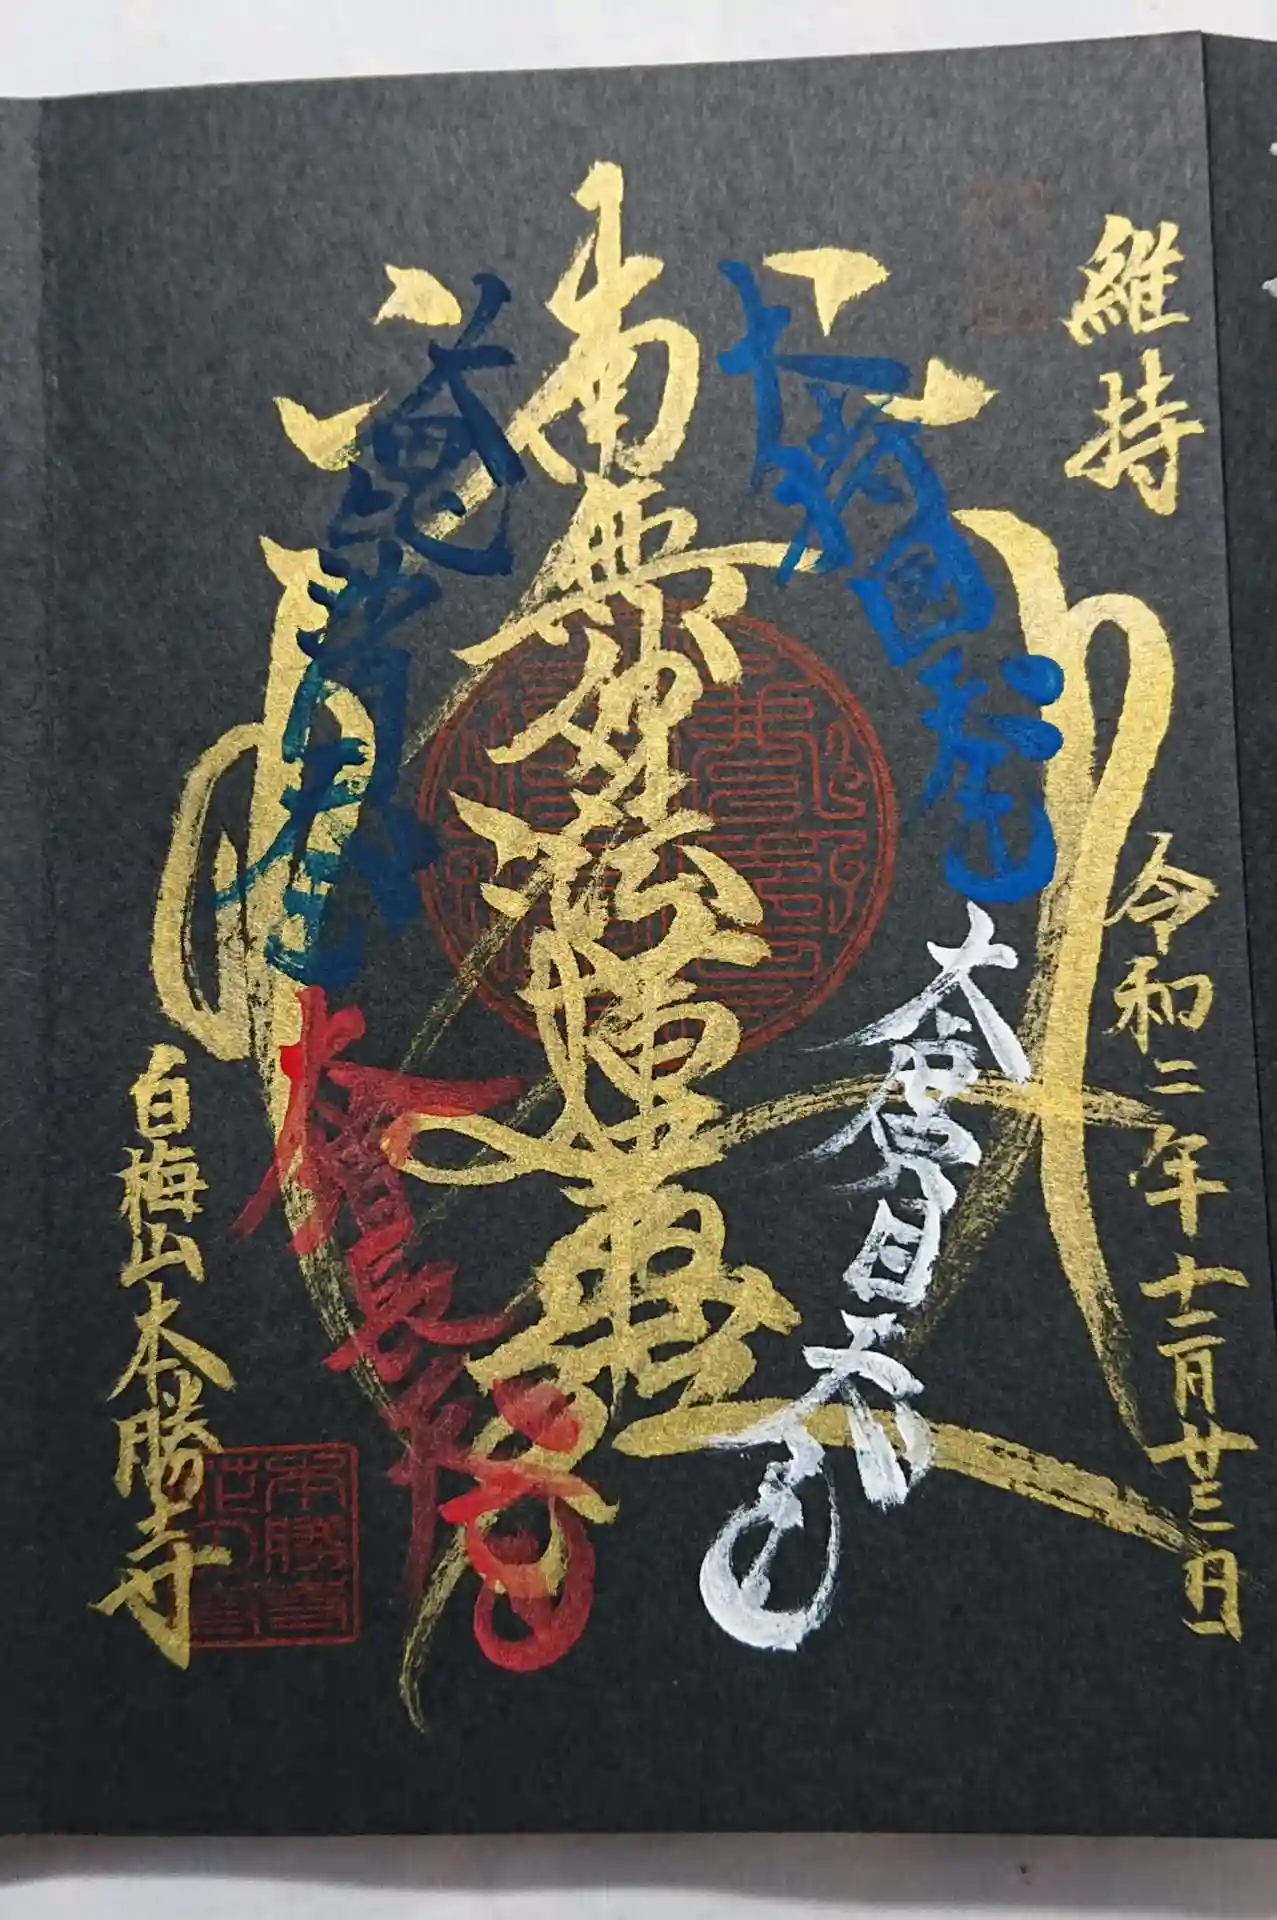 維持
令和二年十二月廿三日
大持国天王
大廣目天王
南無妙法蓮華経
大毘沙門天王
大増長天王
白梅山本勝寺
本勝寺